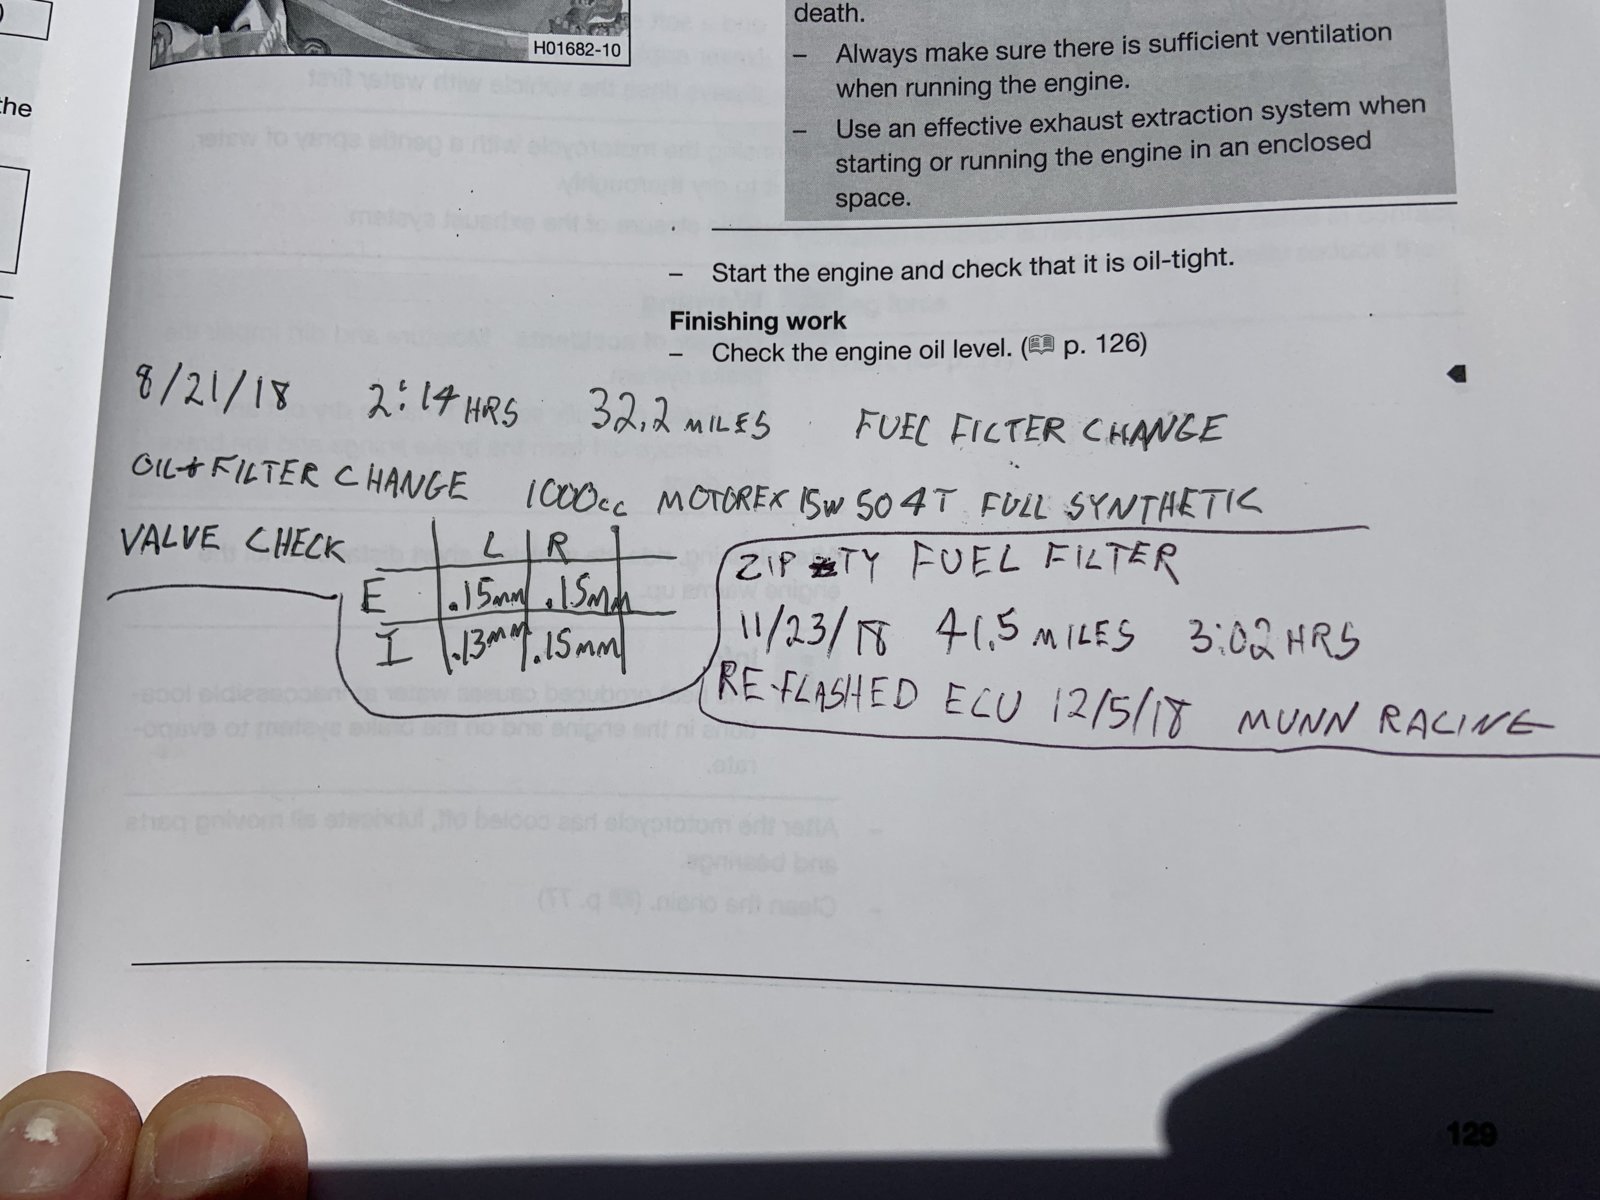 H01682-10
the
death.
– Always make sure there is sufficient ventilation
when running the engine.
– Use an effective exhaust extraction system when
starting or running the engine in an enclosed
space.
– Start the engine and check that it is oil-tight.
Finishing work
– Check the engine oil level. ( p. 126)
8/21/18 2:14 HRS 32.2 MILES FUEL FILTER CHANGE
OIL + FILTER CHANGE 1000cc MOTOREX 15W 50 4T FULL SYNTHETIC
VALVE CHECK L R
E .15mm .15mm
I .13mm .15mm
ZIP TY FUEL FILTER
11/23/18 41.5 MILES 3:02 HRS
RE-FLASHED ECU 12/5/18 MUNN RACING
129